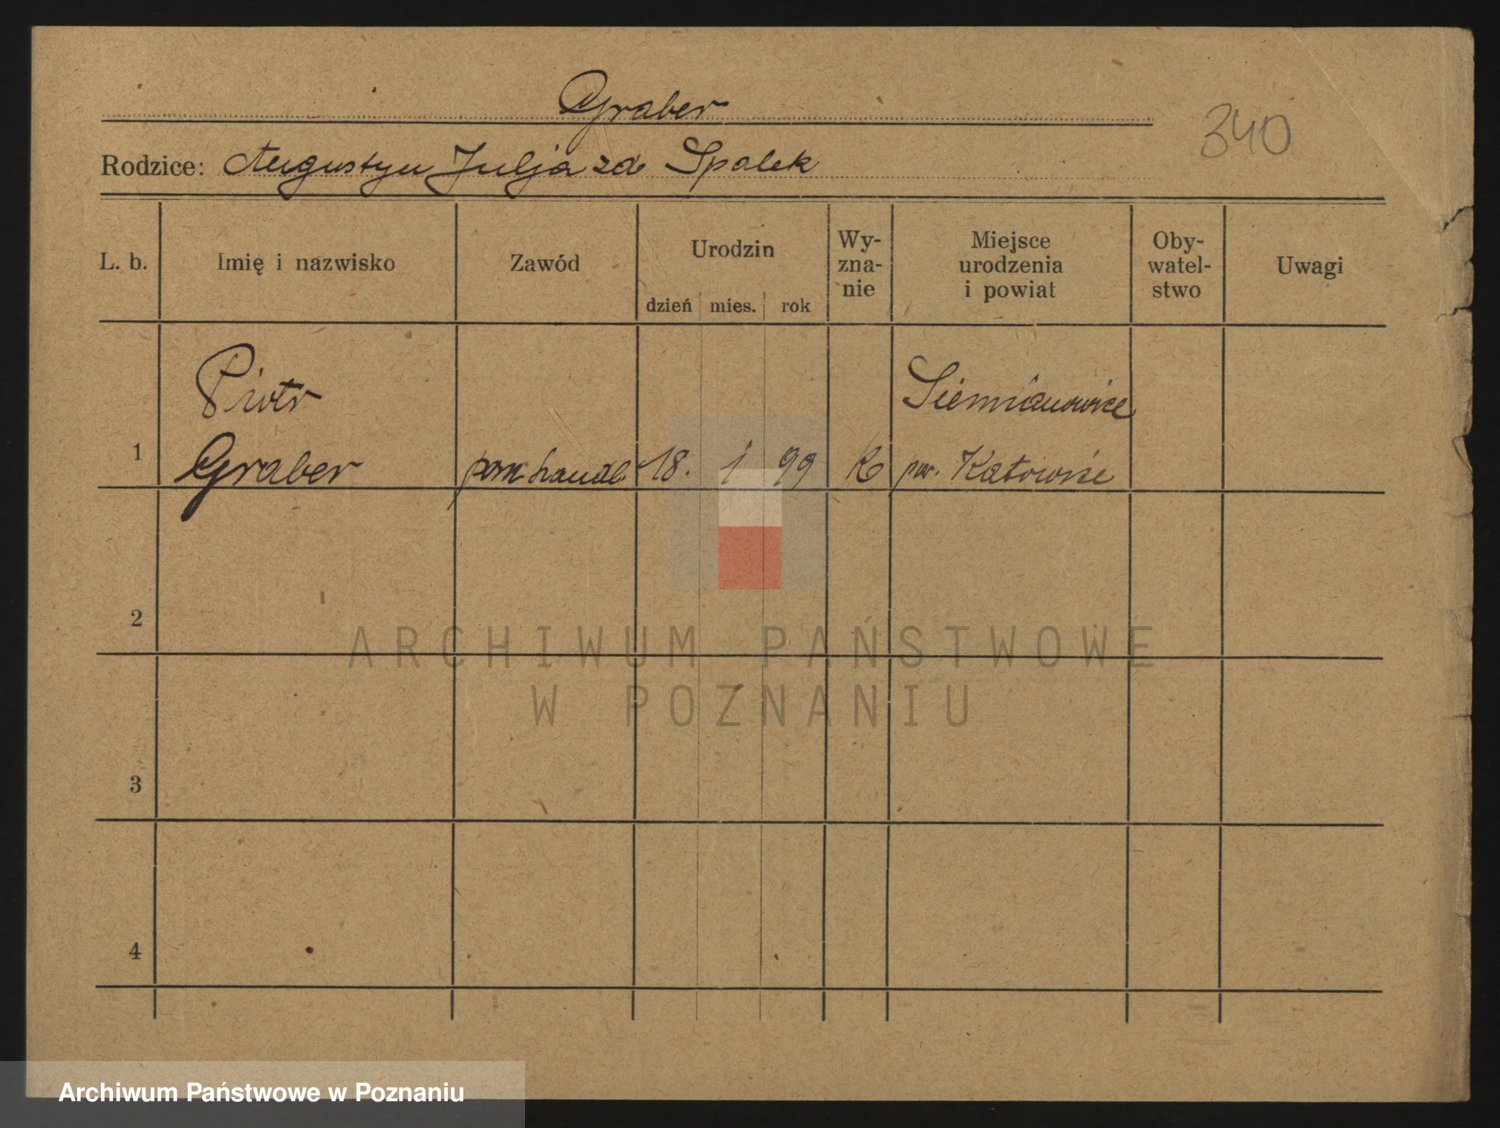 Graber
340
Rodzice: Augustyn Julja zd Spalek
L. b.
Imię i nazwisko
Zawód
Urodzin
dzień mies. rok
Wy-
zna-
nie
Miejsce
urodzenia
i powiat
Oby-
watel-
stwo
Uwagi
Piotr
Siemianowice
1 Graber pom handl 18. 1 99 K pow. Katowice
2
3
4
ARCHIWUM PAŃSTWOWE
W POZNANIU
Archiwum Państwowe w Poznaniu